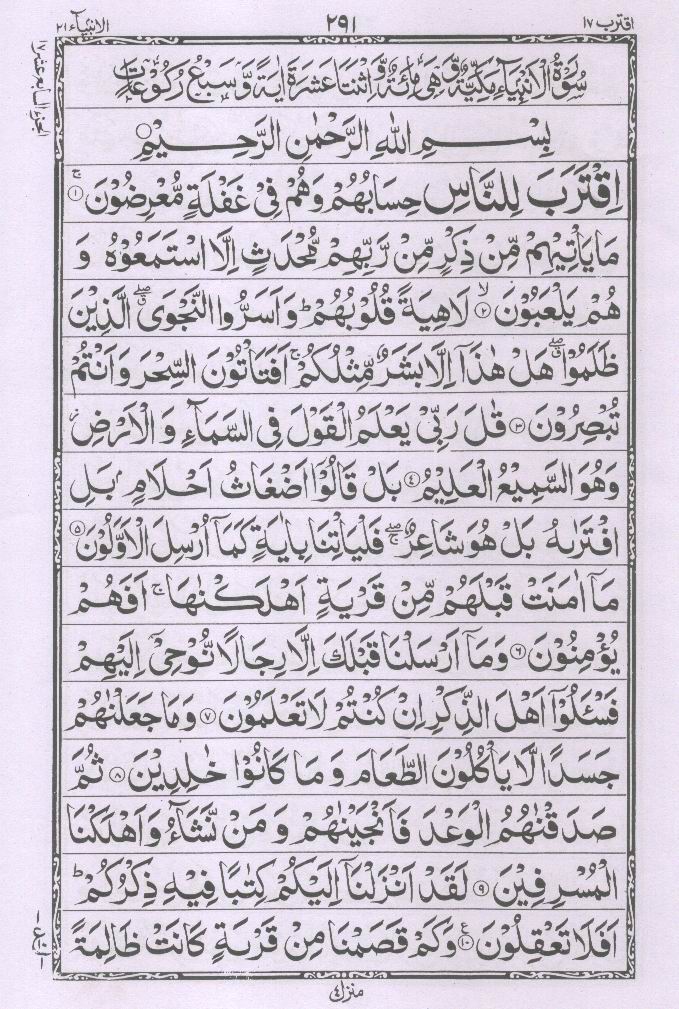 اقترب ١٧
٢٩١
الانبيآء ٢١
سُوْرَةُ الْاَنْبِيَآءِ مَكِّيَّةٌ وَّهِىَ مِائَةٌ وَّاثْنَتَا عَشْرَةَ اٰيَةً وَّسَبْعُ رُكُوْعَاتٍ
بِسْمِ اللّٰهِ الرَّحْمٰنِ الرَّحِيْمِ
اِقْتَرَبَ لِلنَّاسِ حِسَابُهُمْ وَهُمْ فِىْ غَفْلَةٍ مُّعْرِضُوْنَ ۚ ١
مَا يَاْتِيْهِمْ مِّنْ ذِكْرٍ مِّنْ رَّبِّهِمْ مُّحْدَثٍ اِلَّا اسْتَمَعُوْهُ وَ
هُمْ يَلْعَبُوْنَ ۙ ٢ لَاهِيَةً قُلُوْبُهُمْ ؕ وَاَسَرُّوا النَّجْوَى ۖ الَّذِيْنَ
ظَلَمُوْا ۖ هَلْ هٰذَآ اِلَّا بَشَرٌ مِّثْلُكُمْ ۚ اَفَتَاْتُوْنَ السِّحْرَ وَاَنْتُمْ
تُبْصِرُوْنَ ٣ قٰلَ رَبِّىْ يَعْلَمُ الْقَوْلَ فِى السَّمَآءِ وَ الْاَرْضِ ۡ
وَهُوَ السَّمِيْعُ الْعَلِيْمُ ٤ بَلْ قَالُوْٓا اَضْغَاثُ اَحْلَامٍۭ بَلِ
افْتَرٰىهُ بَلْ هُوَ شَاعِرٌ ۖۚ فَلْيَاْتِنَا بِاٰيَةٍ كَمَآ اُرْسِلَ الْاَوَّلُوْنَ ٥
مَآ اٰمَنَتْ قَبْلَهُمْ مِّنْ قَرْيَةٍ اَهْلَكْنٰهَا ۚ اَفَهُمْ
يُؤْمِنُوْنَ ٦ وَمَآ اَرْسَلْنَا قَبْلَكَ اِلَّا رِجَالًا نُّوْحِىْٓ اِلَيْهِمْ
فَسْـَٔلُوْٓا اَهْلَ الذِّكْرِ اِنْ كُنْتُمْ لَا تَعْلَمُوْنَ ٧ وَمَا جَعَلْنٰهُمْ
جَسَدًا لَّا يَاْكُلُوْنَ الطَّعَامَ وَ مَا كَانُوْا خٰلِدِيْنَ ٨ ثُمَّ
صَدَقْنٰهُمُ الْوَعْدَ فَاَنْجَيْنٰهُمْ وَ مَنْ نَّشَآءُ وَاَهْلَكْنَا
الْمُسْرِفِيْنَ ٩ لَقَدْ اَنْزَلْنَآ اِلَيْكُمْ كِتٰبًا فِيْهِ ذِكْرُكُمْ ؕ
اَفَلَا تَعْقِلُوْنَ ١٠ ع وَكَمْ قَصَمْنَا مِنْ قَرْيَةٍ كَانَتْ ظَالِمَةً
منزل ٤